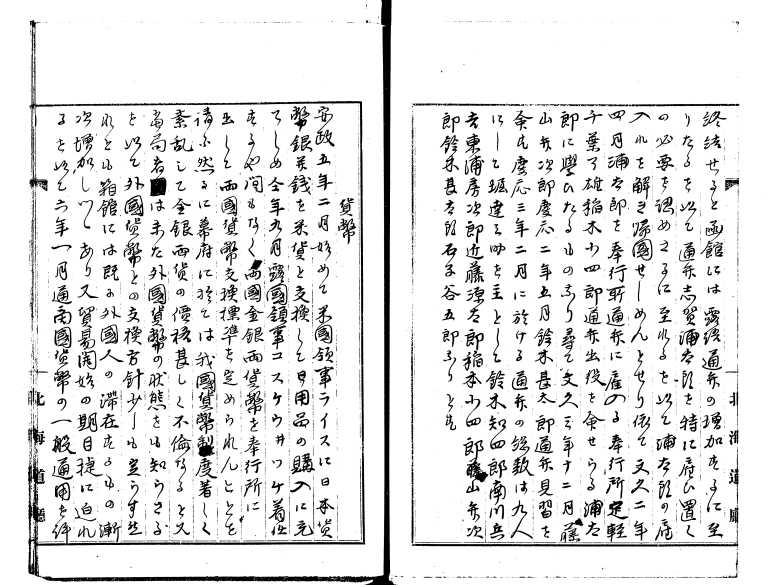 終結せると函館には露語通弁の増加するに至
りたるを以て通弁志賀浦太郎を特に雇ひ置く
の必要を認めさるに至れるを以て浦太郎の雇
入れを解き帰国せしめんとせり依て文久二年
四月浦太郎を奉行所通弁に雇の奉行所定軽
千葉弓雄稲本小四郎通弁出役を命せらる浦太
郎に学ひたるものなり尋て文久三年十二月藤
山弁次郎慶応二年五月鈴木甚太郎通弁見習を
命せ慶応三年二月に於ける通弁の総数は九人
にして堀達之助を主として鈴木知四郎南川兵
吉東浦房次郎近藤源太郎稲本小四郎藤山弁次
郎鈴木甚太郎石谷五郎なりとす
北海道廳
貨幣
安政五年二月始めて米国領事ライスに日本貨
幣銀弁銭を米貨と交換して日用品の購入に充
てしめ仝年九月露国領事コスケウ井ッケ着任
するや間もなく両国金銀両貨幣を奉行所に
出して両国貨幣交換標準を定められんことを
請ふ然るに幕府に於ては我国貨幣制度著しく
紊乱して金銀両貨の価格甚しく不倫なると又
当局者は未た外国貨幣の状態をも知らさる
を以て外国貨幣との交換方針少しも定らす然
れとも箱館には既に外国人の滞在するもの漸
次増加しつつあり又貿易開始の期日捷に迫れ
るを以て六年一月通両国貨幣の一般通用を許
北海道廳